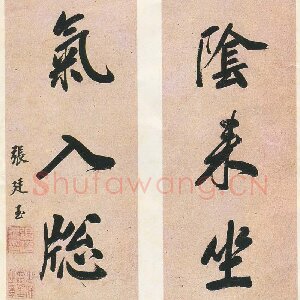 陰来坐
氣入牎
張廷玉
Shufawang.CN